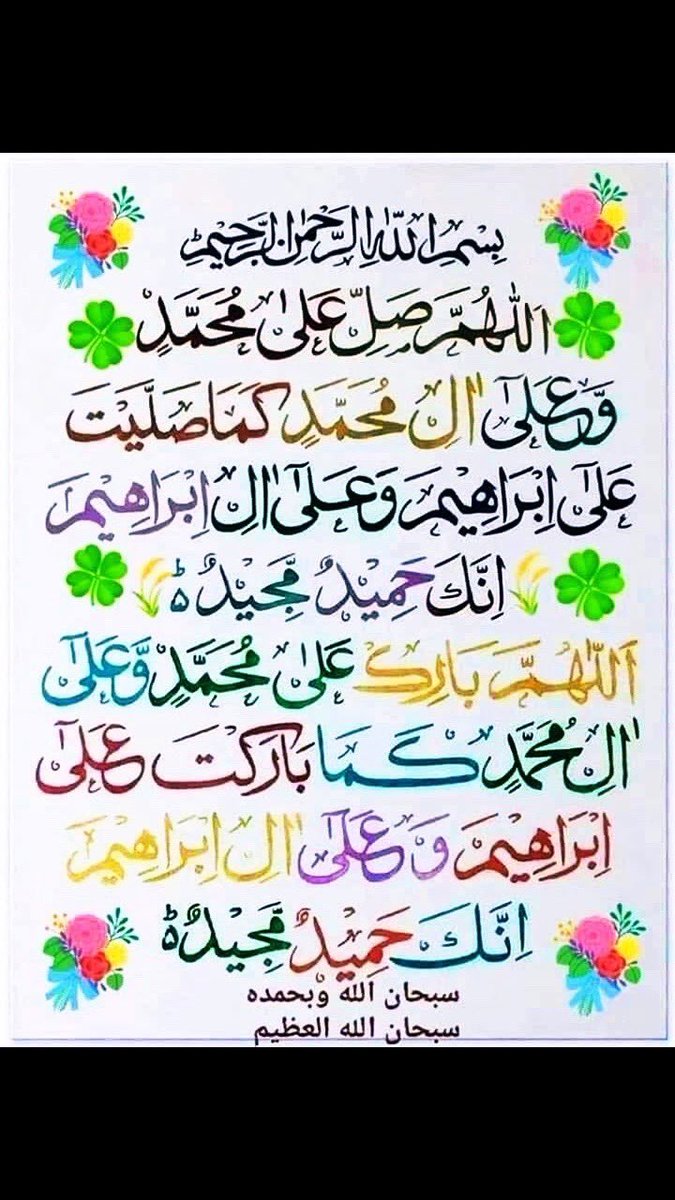 بِسْمِ اللّٰهِ الرَّحْمٰنِ الرَّحِيْمِ
اَللّٰهُمَّ صَلِّ عَلٰى مُحَمَّدٍ
وَّعَلٰٓى اٰلِ مُحَمَّدٍ كَمَا صَلَّيْتَ
عَلٰٓى اِبْرَاهِيْمَ وَعَلٰٓى اٰلِ اِبْرَاهِيْمَ
اِنَّكَ حَمِيْدٌ مَّجِيْدٌ
اَللّٰهُمَّ بَارِكْ عَلٰى مُحَمَّدٍ وَّعَلٰٓى
اٰلِ مُحَمَّدٍ كَمَا بَارَكْتَ عَلٰٓى
اِبْرَاهِيْمَ وَعَلٰٓى اٰلِ اِبْرَاهِيْمَ
اِنَّكَ حَمِيْدٌ مَّجِيْدٌ
سبحان الله وبحمده
سبحان الله العظيم